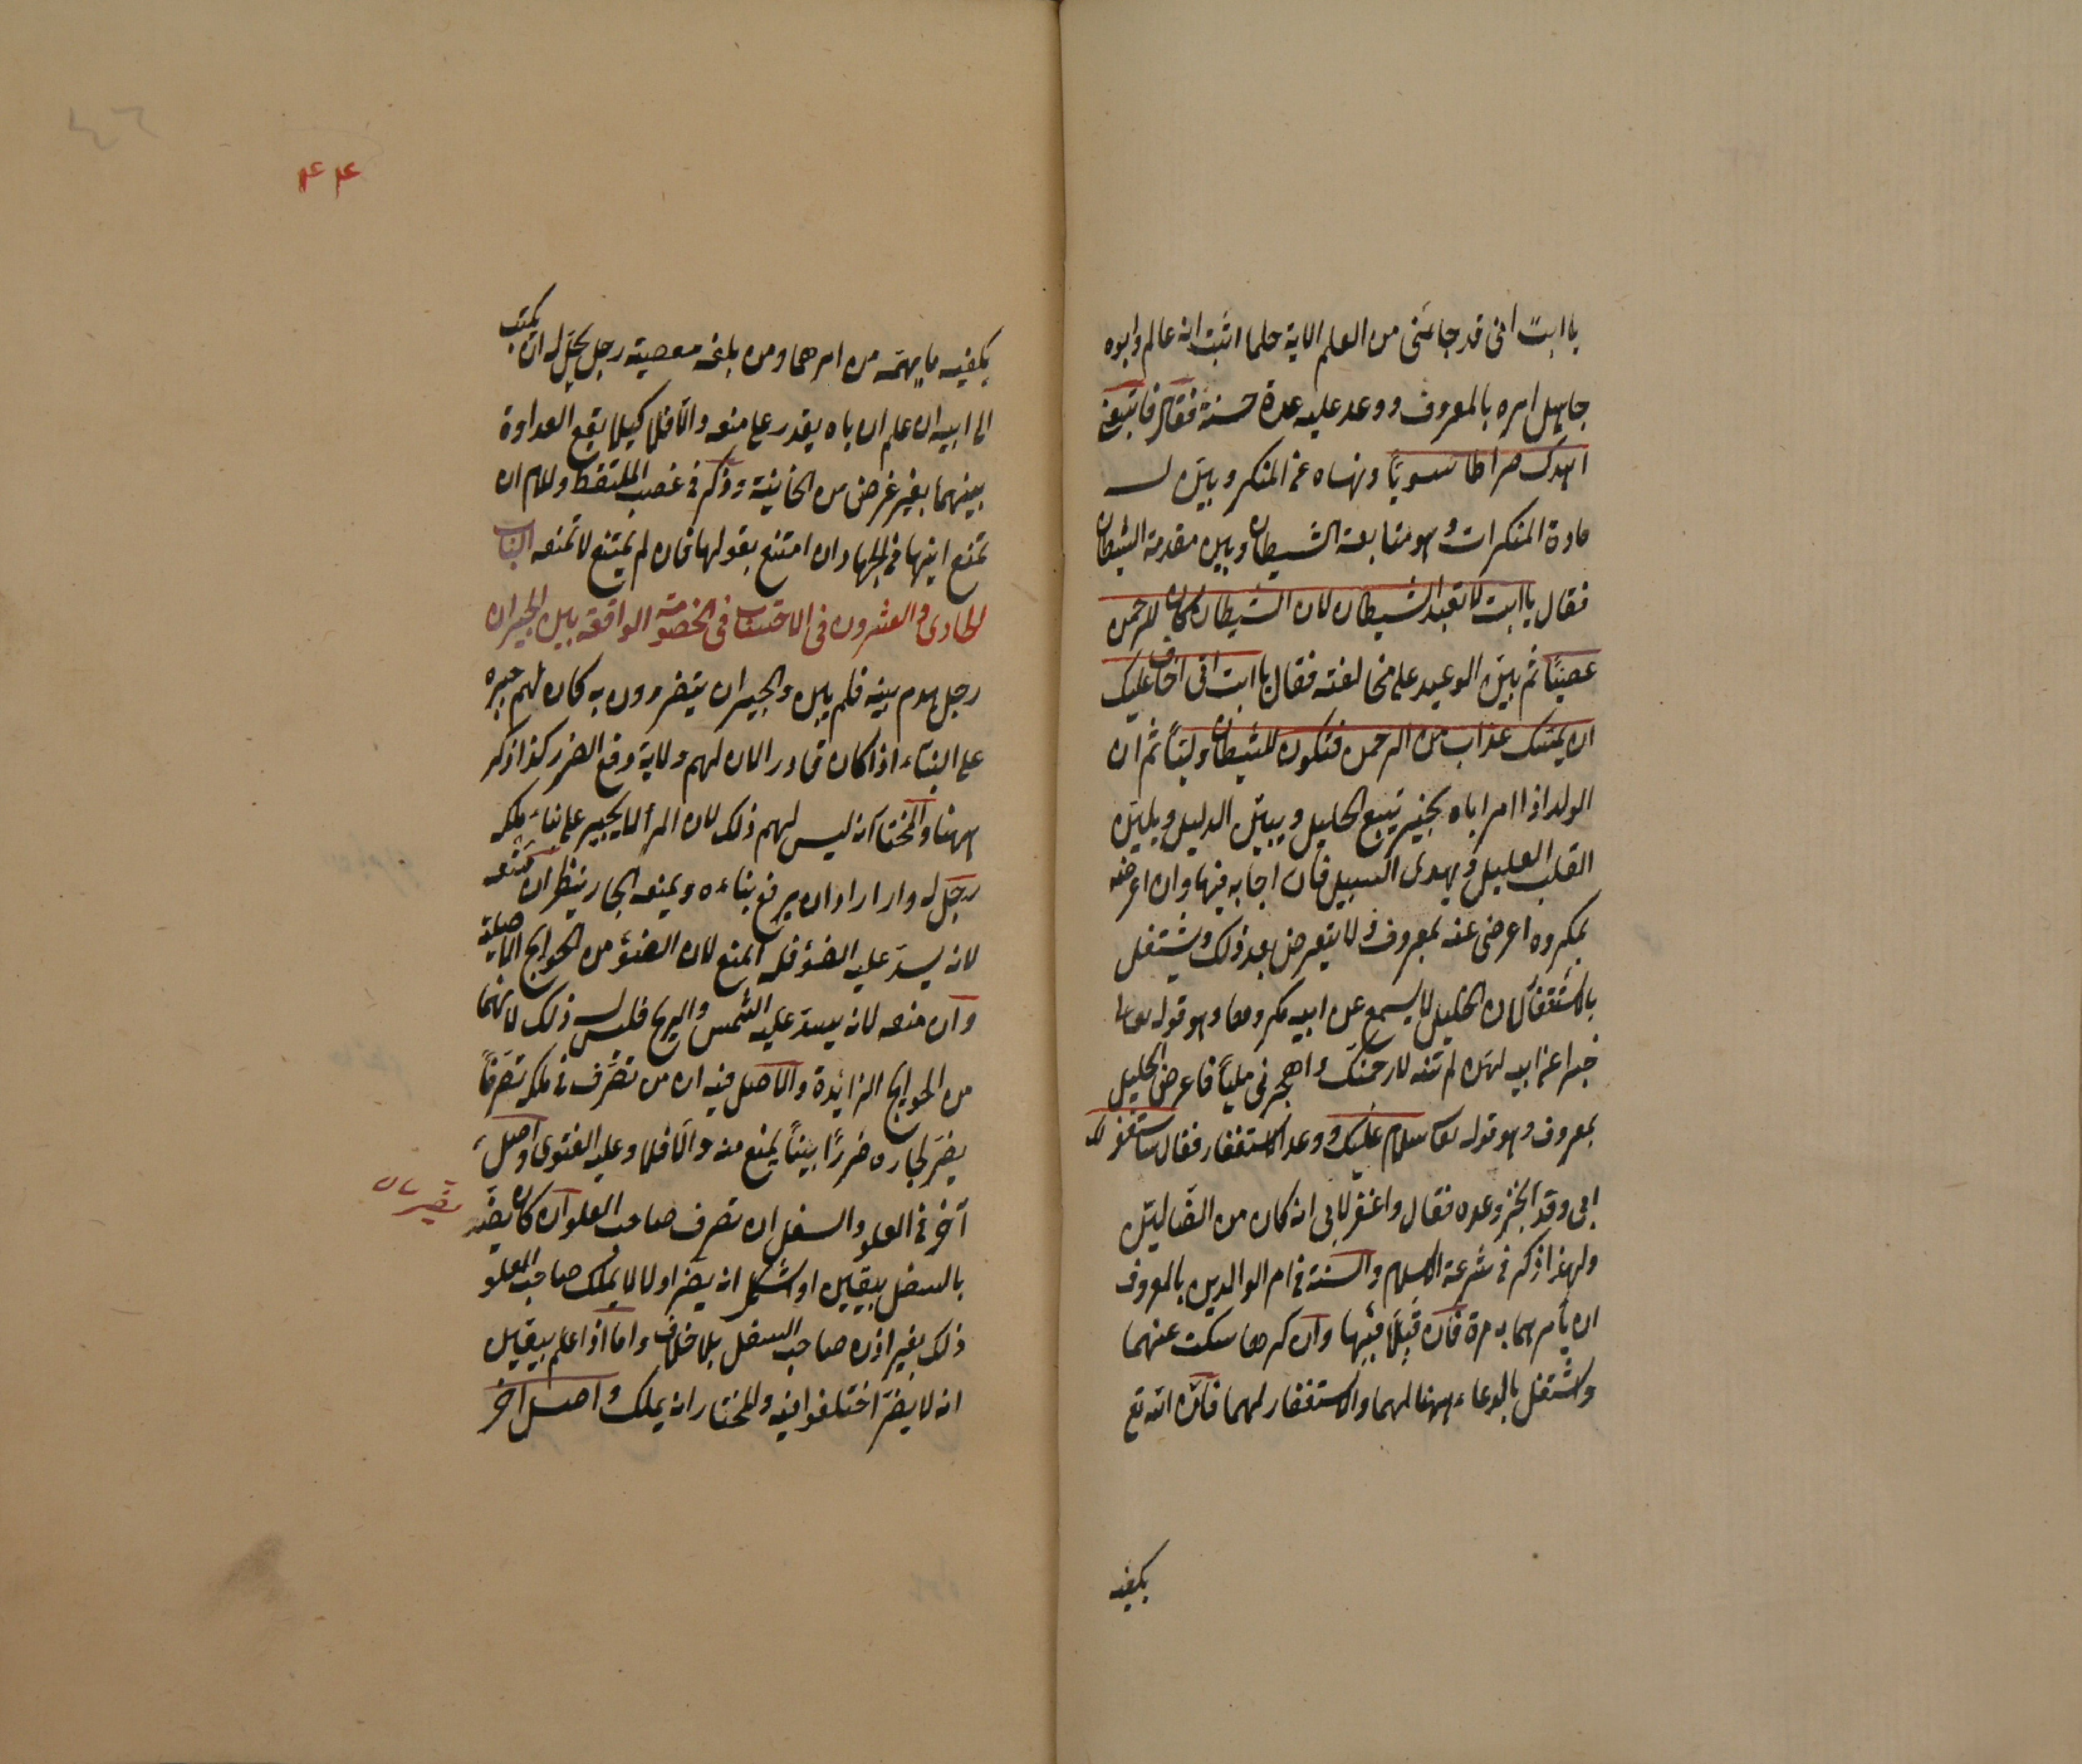 يا ابت انى قد جائنى من العلم الاية حلما اثبت انه عالم وابوه
جاهل امره بالمعروف ووعد عليه عدة حسنة فقال فاتبعنى
اهدك صراطا سويًا ونهاه عن المنكر وبيّن له
مادة المنكرات وهو متابعة الشيطان وبين مقدمة الشيطان
فقال يا ابت لا تعبد الشيطان لان الشيطان كان للرحمن
عصيّا ثم بيّن الوعيد على مخالفته فقال يا ابت انى اخاف عليك
ان يمسّك عذاب من الرحمن فتكون للشيطان وليّاً ثم ان
الولد اذا امر اباه بخير يتبع الخليل ويبيّن الدليل ويليّن
القلب العليل ويهدى السبيل فان اجابه فيها وان اعرضه
بمكروه اعرض عنه بمعروف ولا يتعرض بعد ذلك ويشتغل
بالاستغفار لان الخليل لما يسمع من ابيه مكروها وهو قوله تعالى
خبرا عن ابيه لئن لم تنته لارجمنك واهجرنى مليّاً فاعرض الخليل
بمعروف وهو قوله تعا سلام عليك ووعد الاستغفار فقال ساستغفر لك
ربى وقد انجز وعده فقال واغفر لابى انه كان من الضّاليّن
ولهذا ذكر فى شرعة الاسلام والسنة فى امر الوالدين بالمعروف
ان يأمرهما به مرة فان قبلا فبها وان كرها سكت عنهما
واشتغل بالدعاء ههنا لهما والاستغفار لهما فانّ الله تع
يكفيه
٤٤
يكفيه ما يهمّه من امرهما ومن بلغه معصية رجل يحلّ له ان يكتب
الى ابيه ان علم ان اباه يقدر على منعه والّا فلا كيلا يقع العداوة
بينهما بغير غرض من الخانية وذكر فى غصب الملتقط وللام ان
تمنع ابنها فى الجهاد ان امتنع بقولها فان لم يمتنع لا تمنعه الباب
الحادى والعشرون فى الاحتساب فى الخصومة الواقعة بين الجيران
رجل هدم بيته فلم يبن والجيران يتضررون به كان لهم جبره
على البناء اذا كان قادرا لان لهم ولاية دفع الضرر كذا ذكر
ههنا والمختار انه ليس لهم ذلك لان المرأ لا يجبر على بناء ملكه
رجل له دار اراد ان يرفع بناءه ويمنعه الجار ينظر ان منعه
لانه يسدّ عليه الضوء فله المنع لان الضوء من الحوايج الاصلية
وان منعه لانه يسدّ عليه الشمس والريح فليس ذلك لانهما
من الحوايج الزائدة والاصل فيه ان من تصرّف فى ملكه تصرّفاً
يضرّ لجاره ضررًا بيناً يمنع منه والّا فلا وعليه الفتوى واصل
آخر فى العلو والسفل ان تصرف صاحب العلو ان كان يضرّ
بالسفل بيقين او اشكل انه يضر او لا لا يملك صاحب العلو
ذلك بغير اذن صاحب السفل بلا خلاف واما اذا علم بيقين
انه لا يضرّ اختلفوا فيه والمختار انه يملك واصل آخر